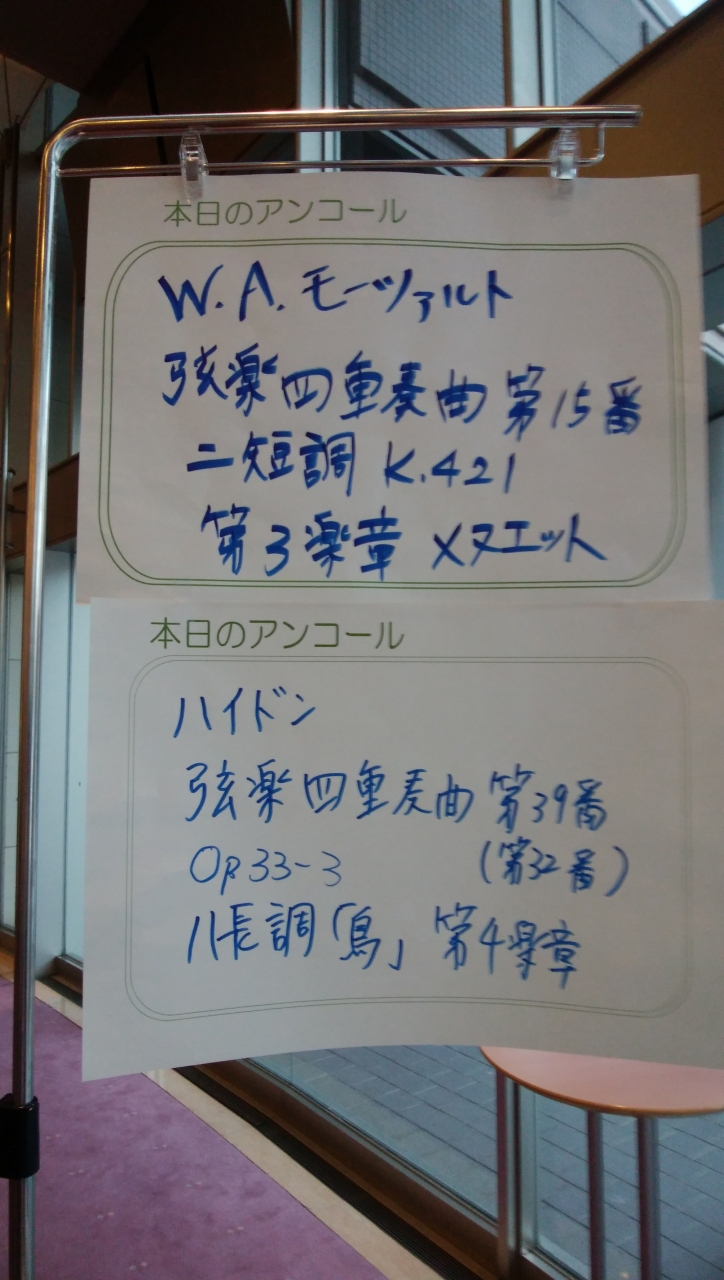 本日のアンコール
W.A.モーツァルト
弦楽四重奏曲 第15番
ニ短調 K.421
第3楽章 メヌエット
本日のアンコール
ハイドン
弦楽四重奏曲 第39番
Op33-3 (第32番)
ハ長調「鳥」 第4楽章